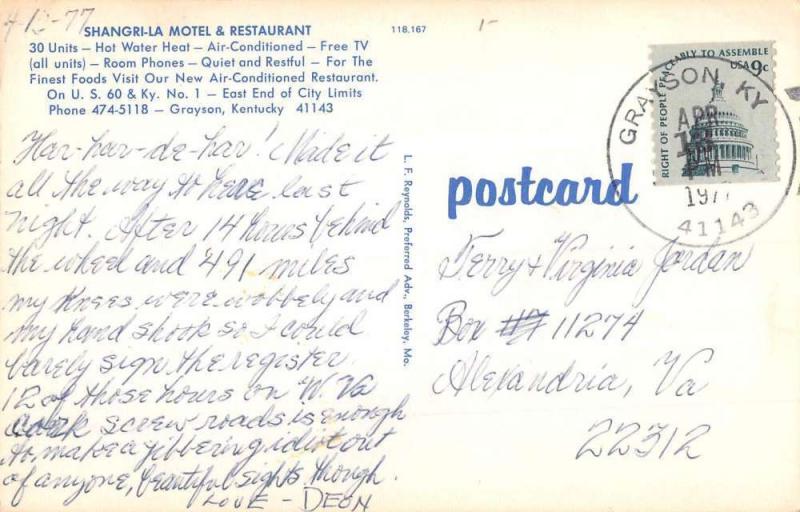 4-13-77
SHANGRI-LA MOTEL & RESTAURANT
30 Units — Hot Water Heat — Air-Conditioned — Free TV
(all units) — Room Phones — Quiet and Restful — For The
Finest Foods Visit Our New Air-Conditioned Restaurant.
On U. S. 60 & Ky. No. 1 — East End of City Limits
Phone 474-5118 — Grayson, Kentucky 41143
Har-har-de-har! Made it
all the way to here last
night. After 14 hours behind
the wheel and 491 miles
my knees were wobbely and
my hand shook so I could
barely sign the register.
12 of those hours on W. Va
cork screw roads is enough
to make a jibbering idiot out
of anyone, beautiful sights though.
LOVE - DEON
118,167
L. F. Reynolds, Preferred Adv., Berkeley, Mo.
postcard
RIGHT OF PEOPLE PEACEABLY TO ASSEMBLE
USA 9c
GRAYSON, KY
APR
13
PM
1977
41143
Jerry & Virginia Jordan
Box 11274
Alexandria, Va
22312